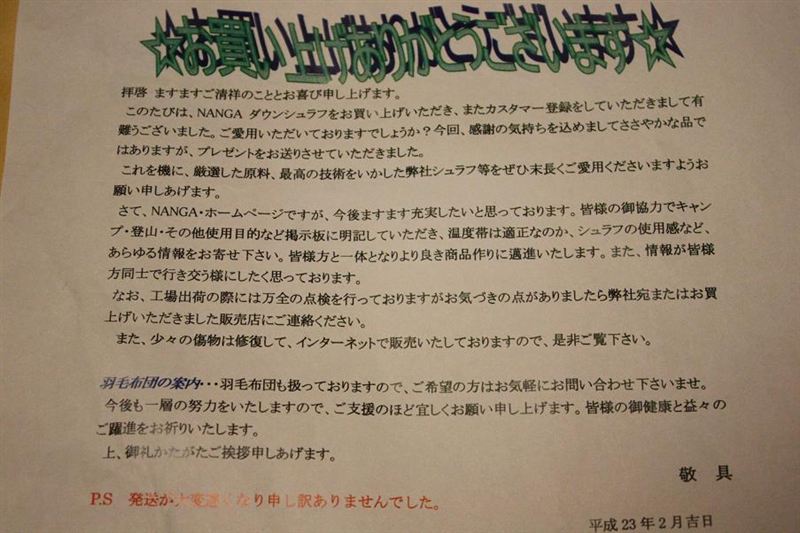 ☆お買い上げありがとうございます☆
拝啓 ますますご清祥のこととお喜び申し上げます。
このたびは、NANGA ダウンシュラフをお買い上げいただき、またカスタマー登録をしていただきまして有
難うございました。ご愛用いただいておりますでしょうか？今回、感謝の気持ちを込めましてささやかな品で
はありますが、プレゼントをお送りさせていただきました。
これを機に、厳選した原料、最高の技術をいかした弊社シュラフ等をぜひ末長くご愛用くださいますようお
願い申しあげます。
さて、NANGA・ホームページですが、今後ますます充実したいと思っております。皆様の御協力でキャン
プ・登山・その他使用目的など掲示板に明記していただき、温度帯は適正なのか、シュラフの使用感など、
あらゆる情報をお寄せ下さい。皆様方と一体となりより良き商品作りに邁進いたします。また、情報が皆様
方同士で行き交う様にしたく思っております。
なお、工場出荷の際には万全の点検を行っておりますがお気づきの点がありましたら弊社宛またはお買
上げいただきました販売店にご連絡ください。
また、少々の傷物は修復して、インターネットで販売いたしておりますので、是非ご覧下さい。
羽毛布団の案内・・・羽毛布団も扱っておりますので、ご希望の方はお気軽にお問い合わせ下さいませ。
今後も一層の努力をいたしますので、ご支援のほど宜しくお願い申し上げます。皆様の御健康と益々の
ご躍進をお祈りいたします。
上、御礼かたがたご挨拶申しあげます。
敬 具
P.S 発送が大変遅くなり申し訳ありませんでした。
平成 23 年 2 月吉日